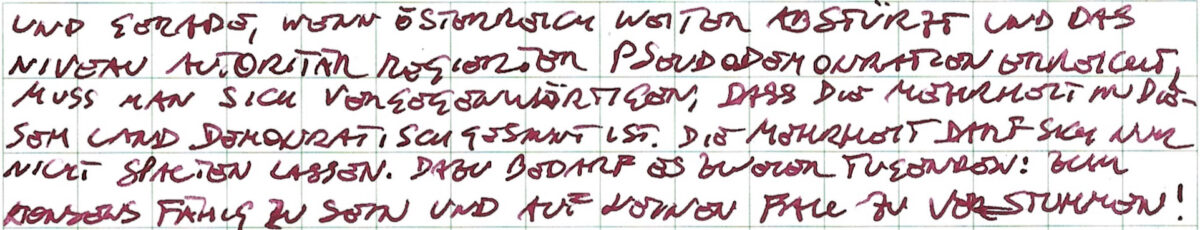 UND GERADE, WENN ÖSTERREICH WEITER ABSTÜRZT UND DAS
NIVEAU AUTORITÄR REGIERTER PSEUDODEMOKRATIEN ERREICHT,
MUSS MAN SICH VERGEGENWÄRTIGEN, DASS DIE MEHRHEIT IN DIE-
SEM LAND DEMOKRATISCH GESINNT IST. DIE MEHRHEIT DARF SICH NUR
NICHT SPALTEN LASSEN. DAZU BEDARF ES ZWEIER TUGENDEN: ZUM
KONSENS FÄHIG ZU SEIN UND AUF KEINEN FALL ZU VERSTUMMEN!